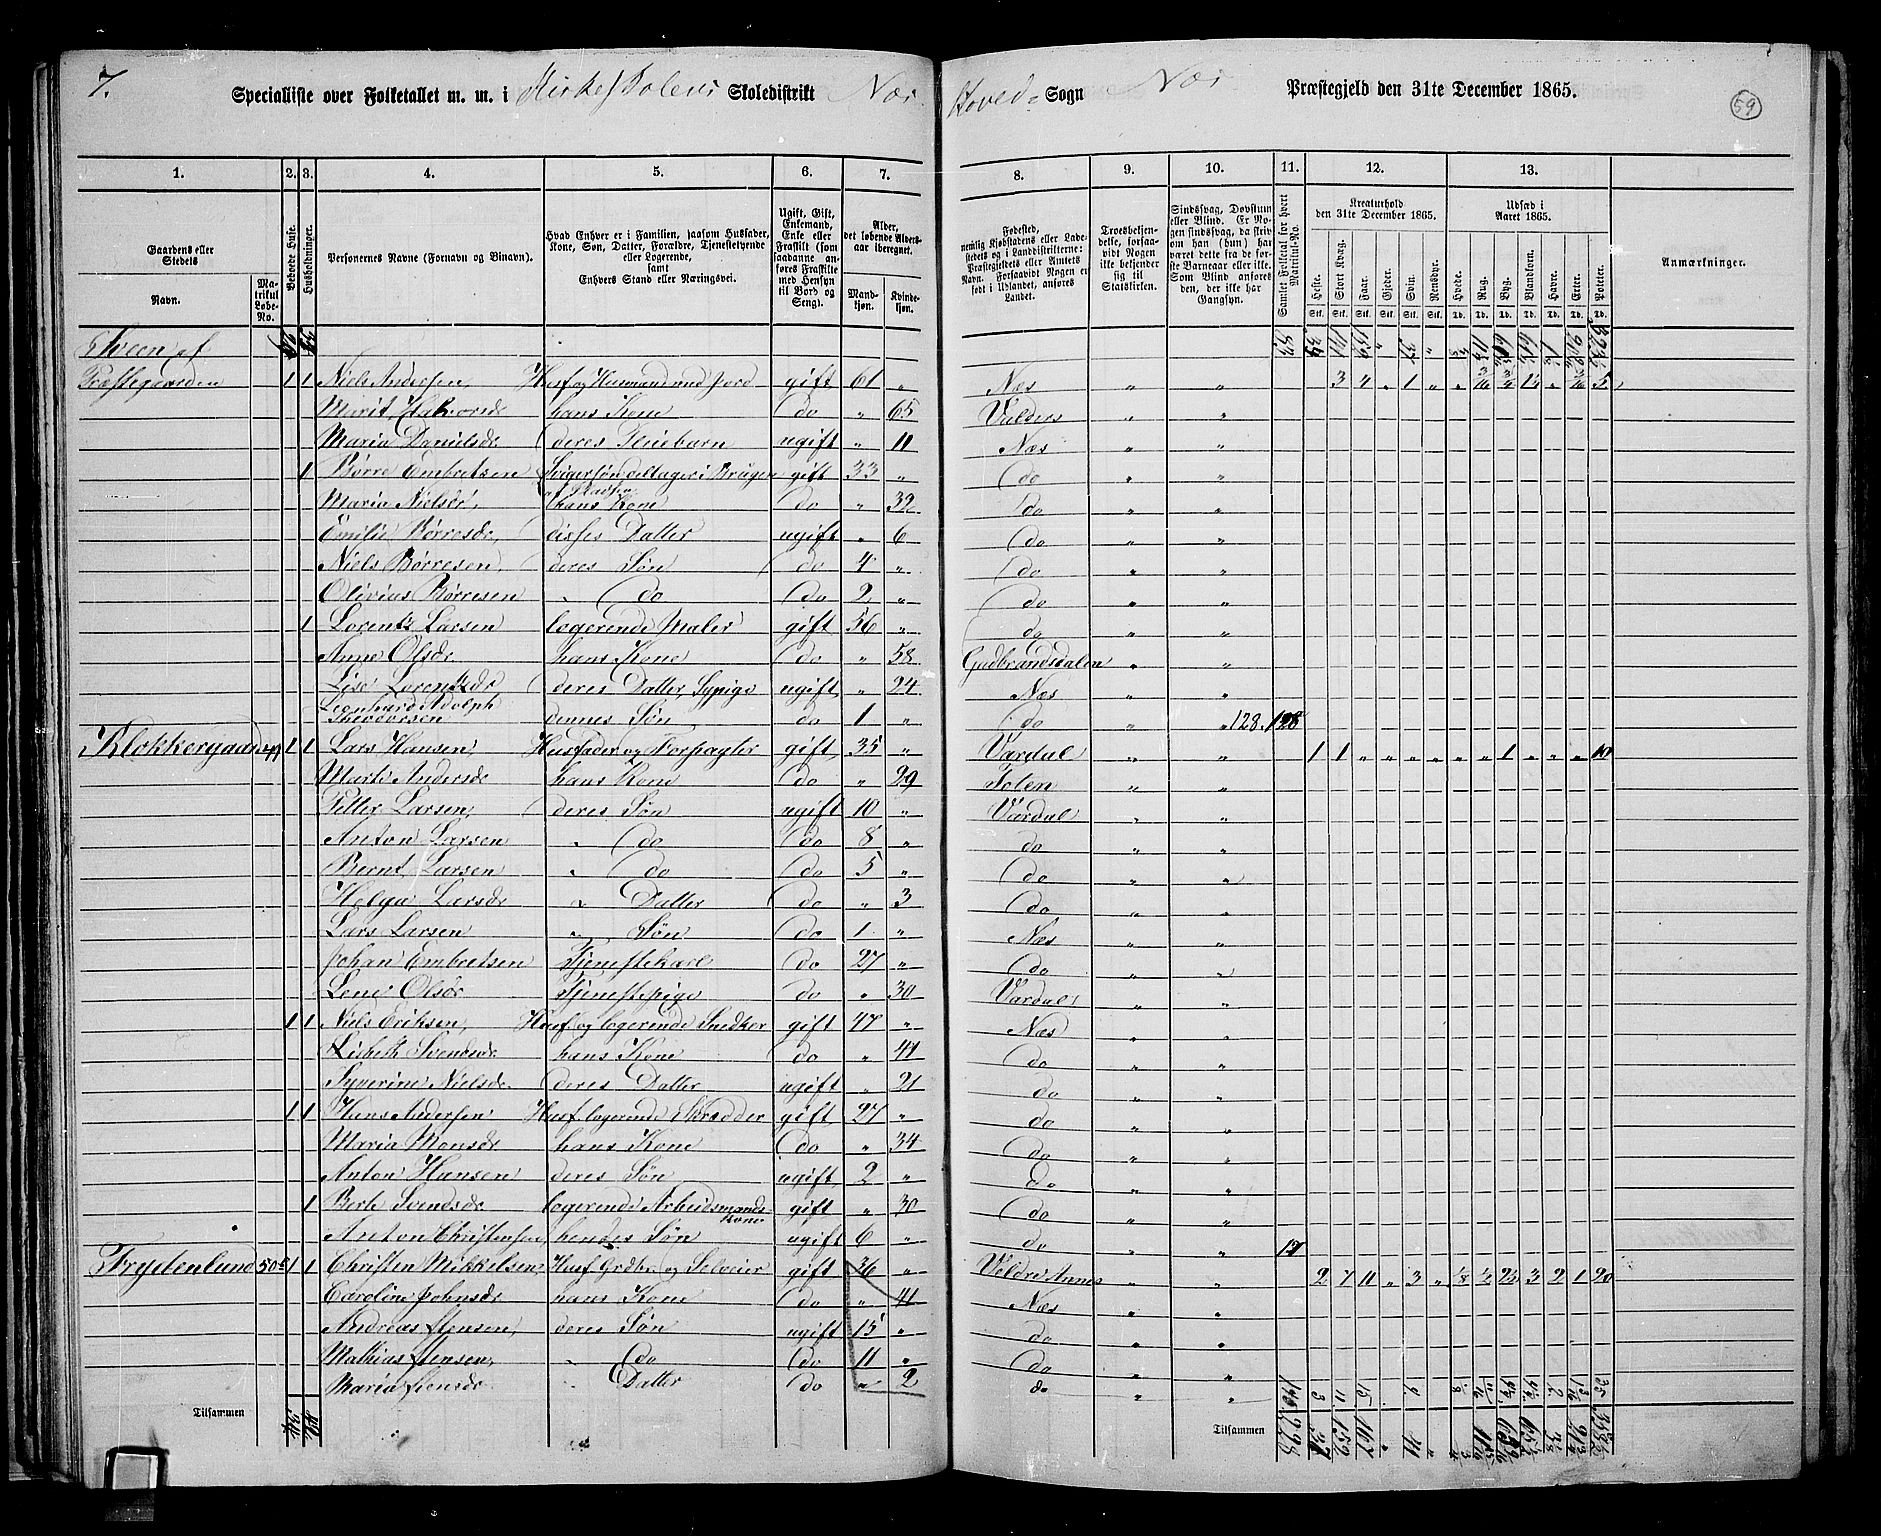 7.
Specialliste over Folketallet m. m. i Kirkeskolens Skoledistrikt Næs
Hoved- Sogn Næs Præstegjeld den 31te December 1865.
59
1. 2. 3. 4. 5. 6. 7.
8. 9. 10. 11. 12. 13.
Gaardens eller Stedets
Navn.
Matrikul Løbe-No.
Beboede Huse.
Husholdninger.
Personernes Navne (Fornavn og Binavn).
Hvad Enhver er i Familien, saasom Husfader, Kone, Søn, Datter, Forældre, Tjenestetyende eller Logerende, samt Enhvers Stand eller Næringsvei.
Ugift, Gift, Enkemand, Enke eller Fraskilt (som saadanne anføres Fraskilte med Hensyn til Bord og Seng).
Alder, det løbende Alders-aar iberegnet.
Mandkjøn.
Kvindekjøn.
Fødested, nemlig Kjøbstadens eller Ladestedets og i Landdistrikterne: Præstegjeldets eller Amtets Navn. Forsaavidt Nogen er født i Udlandet, anføres Landet.
Troesbekjendelse, forsaavidt Nogen ikke bekjender sig til Statskirken.
Sindssvag, Døvstum eller Blind. Er Nogen sindssvag, da skriv om han (hun) har været dette fra de første Barneaar eller ikke. Som Blind anføres den, der ikke har Gangsyn.
Samlet Folketal for hvert Matrikul-No.
Kreaturhold den 31te December 1865.
Heste. Stort Kvæg. Faar. Gjeder. Svin. Rensdyr.
Udsæd i Aaret 1865.
Hvede. Rug. Byg. Blandkorn. Havre. Erter. Poteter.
Stk. Stk. Stk. Stk. Stk. Stk. Td. Td. Td. Td. Td. Td. Td.
Anmærkninger.
Sveen af
Præstegaarden 1 1 Niels Andersen, Husf og Husmand med Jord gift 61 " Næs " " 3 4 " 1 " " 3/16 3/4 1 1/4 " 3/16 5
Marit Halvorsdr hans Kone do " 65 Valders " "
Maria Danielsdr deres Pleiebarn ugift " 11 Næs " "
1 Børre Embretsen Svigersøn deltager i Brugen gift 33 " do " "
af Pladsen
Maria Nielsdr, hans Kone do " 32 do " "
Emilie Børresdr, disses Datter ugift " 6 do " "
Niels Børresen, deres Søn do 4 " do " "
Olivius Børresen " do do 2 " do " "
1 Lorentz Larsen logerende Maler gift 56 " do " "
Anne Olsdr. hans Kone do " 58 Gudbrandsdalen " "
Lise Lorentzdr, deres Datter, Sypige ugift " 24 Næs " "
Leonhard Adolph
Theodorsen dennes Søn do 1 " do " " 128. 128
Klokkergaard 49 1 1 Lars Hansen, Husfader og Forpagter gift 35 " Vardal " " 1 1 " " " " " " 1 " " " 10
Marte Andersdr hans Kone do " 29 Toten " "
Petter Larsen, deres Søn ugift 10 " Vardal " "
Anton Larsen " do do 8 " do " "
Bernt Larsen " do do 5 " do " "
Helga Larsdr " Datter do " 3 do " "
Lars Larsen " Søn do 1 " Næs " "
Johan Embretsen Tjenestekarl do 27 " do " "
Lene Olsdr Tjenestepige do " 30 Vardal " "
1 1 Niels Eriksen, Husf. og logerende Snedker gift 47 " Næs " "
Lisbeth Svendsdr hans Kone do " 47 do " "
Syverine Nielsdr. deres Datter ugift " 21 do " "
1 1 Hans Andersen Husf. logerende Skrædder gift 27 " do " "
Maria Monsdr hans Kone do " 34 do " "
Anton Hansen deres Søn ugift 2 " do " "
1 Berte Svendsdr. logerende Arbeidsmands Kone gift " 30 do " "
Anton Christensen, hendes Søn ugift 6 " do " " 17
Frydenlund 50 1 1 Christen Mikkelsen, Husf. Grdbr. og Selveier gift 36 " Veldre Annex " " 2 7 11 " 3 " 1/8 1/2 2 1/2 3 2 1 20
Caroline Johnsdr hans Kone do " 41 Næs " "
Andreas Stensen, deres Søn ugift 15 " do " "
Mathias Stensen, " do do 11 " do " "
Maria Stensdr " Datter do " 2 do " "
Tilsammen
Tilsammen